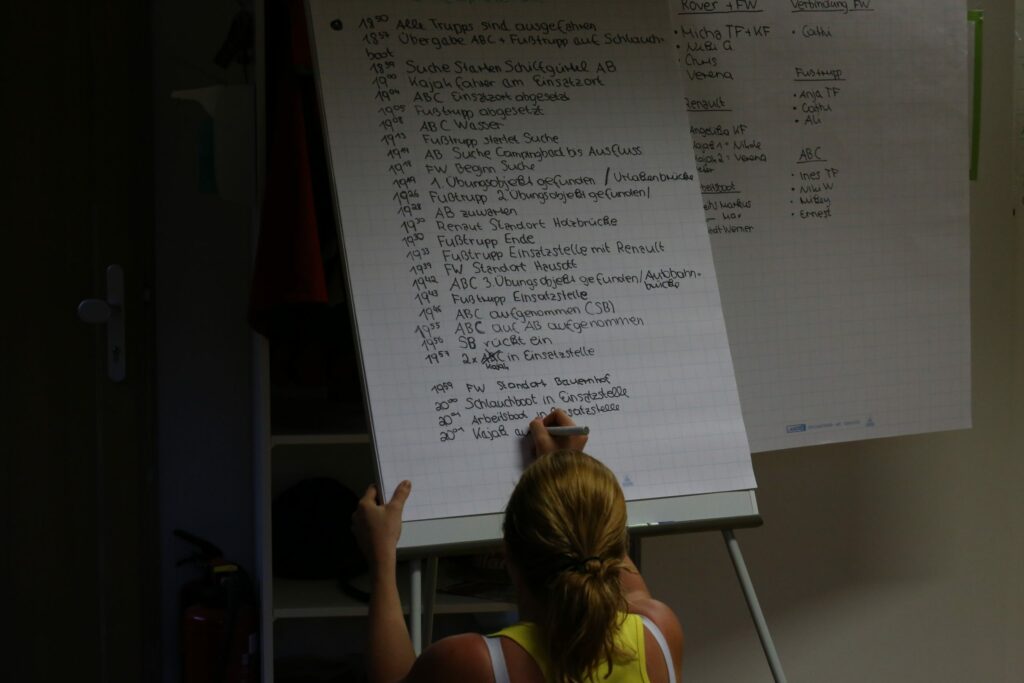 18⁵⁰ Alle Trupps sind ausgefahren
18⁵⁷ Übergabe ABC + Fußtrupp auf Schlauch-
boot
18⁵⁹ Suche Starten Schilfgürtel AB
19⁰⁰ Kajakfahrer am Einsatzort
19⁰⁴ ABC Einsatzort abgesetzt
19⁰⁵ Fußtrupp abgesetzt
19⁰⁸ ABC Wasser
19¹³ Fußtrupp startet Suche
AB Suche Campingbad bis Ausfluss
19¹⁸ FW Beginn Suche
19¹⁹ 1. Übungsobjekt gefunden / Urlaßenbrücke
19²⁶ Fußtrupp 2. Übungsobjekt gefunden/
19²⁸ AB zuwarten
19³⁰ Renaut Standort Holzbrücke
19³⁰ Fußtrupp Ende
19³³ Fußtrupp Einsatzstelle mit Renault
19³⁹ FW Standort Hausott
19⁴² ABC 3. Übungsobjekt gefunden/Autobahn-
brücke
19⁴³ Fußtrupp Einsatzstelle
19⁴⁶ ABC aufgenommen (SB)
19⁵⁵ ABC auf AB aufgenommen
19⁵⁶ SB rückt ein
19⁵⁷ 2x Kajak in Einsatzstelle
19⁵⁹ FW Standort Bauernhof
20⁰⁰ Schlauchboot in Einsatzstelle
20⁰¹ Arbeitsboot in Einsatzstelle
20⁰¹ Kajak au
Rover + FW
• Micha TF + KF
• Chris
Verena
Renault
Angelika KF
Kajak 1 = Nikole
Kajak 2 = Verena
Arbeitsboot
Markus
Werner
Verbindung FW
• Cathi
Fußtrupp
• Anja TF
• Cathi
• Ali
ABC
• Ines TF
• Niki W
• Mikey
• Ernest